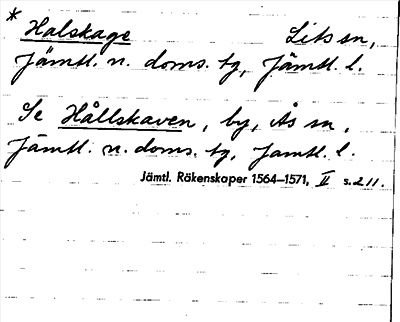 * Halskage Lits sn,
Jämtl. n. doms. tg, Jämtl. l.
Se Hållskaven, by, Ås sn,
Jämtl. n. doms. tg, Jämtl. l.
Jämtl. Räkenskaper 1564–1571, II s. 211.